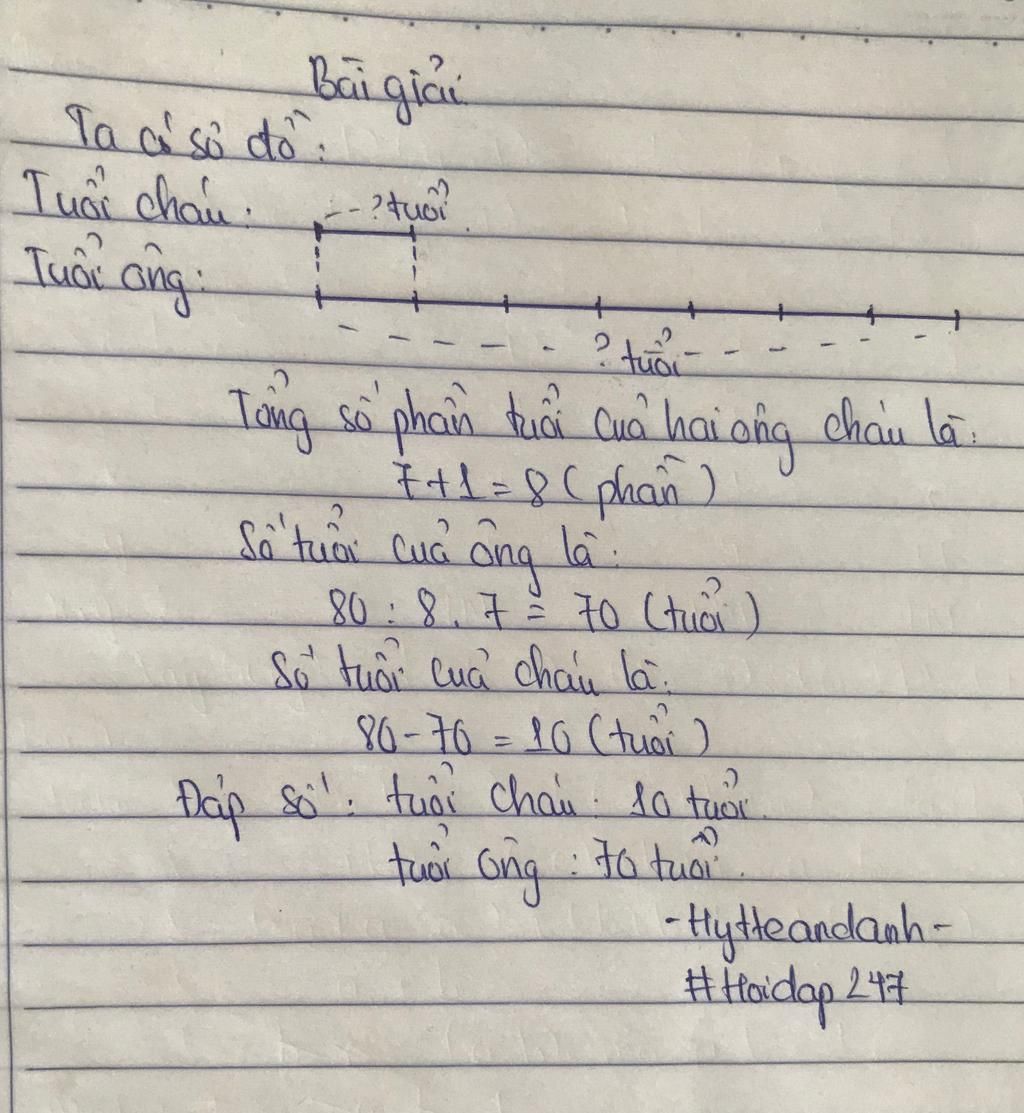 Bài giải
Ta có sơ đồ:
Tuổi cháu: ? tuổi
Tuổi ông:
? tuổi
Tổng số phần tuổi của hai ông cháu là:
7+1=8 (phần)
Số tuổi của ông là:
80 : 8 . 7 = 70 (tuổi)
Số tuổi của cháu là:
80-70 = 10 (tuổi)
Đáp số: tuổi cháu: 10 tuổi.
tuổi ông : 70 tuổi.
-HyHeandanh-
#Hoidap247